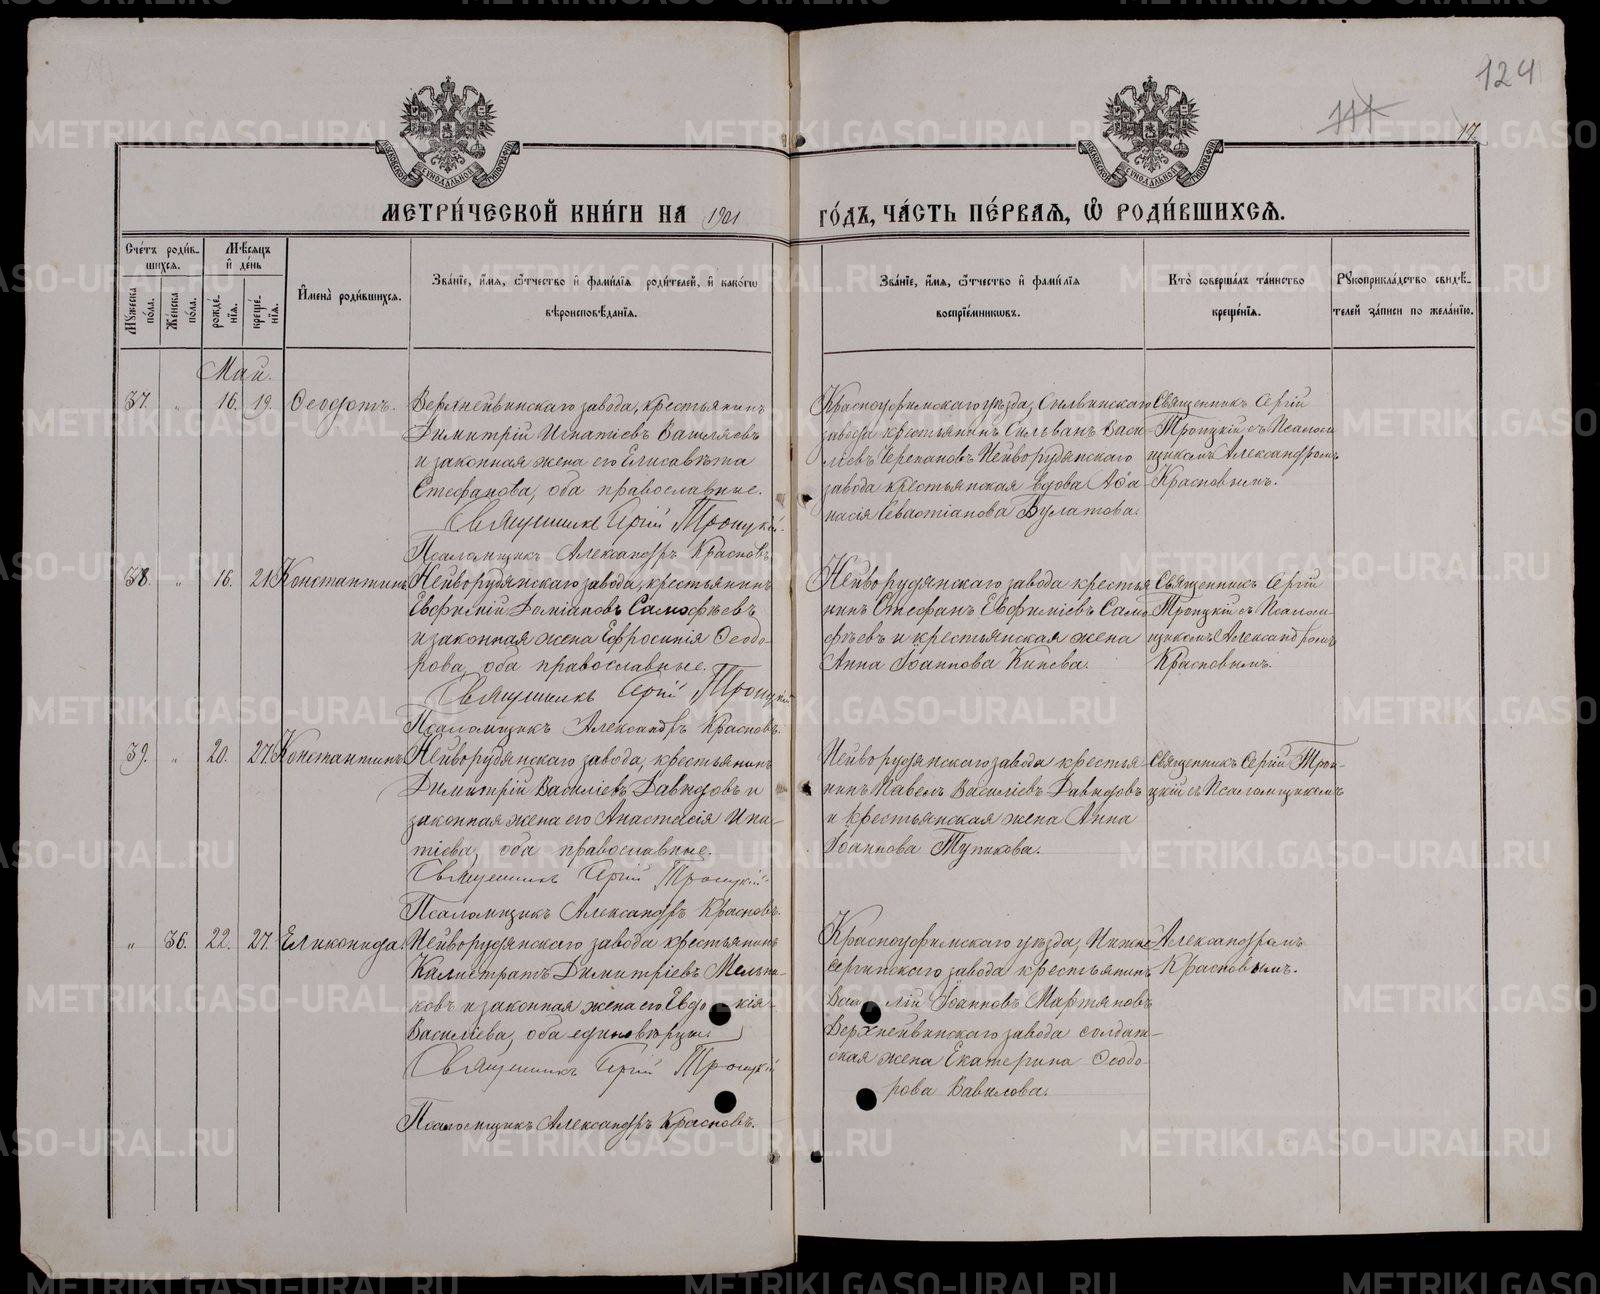 124
111
17
МЕТРИ́ЧЕСКОЙ КНИ́ГИ НА 1901 ГО́ДЪ, ЧА́СТЬ ПЕ́РВАЯ, Ѡ РОДИ́ВШИХСЯ.
Сче́тъ роди́в-
шихся.
Мѣ́сяцъ
и де́нь
Му́жеска по́ла.
Же́нска по́ла.
рожде́-
нїя.
креще́-
нїя.
И҆мена̀ роди́вшихся.
Зва́нїе, и҆́мя, ѻ҆́тчество и҆ фами́лїя роди́телей, и҆ како́гѡ
вѣроисповѣ́данїя.
Зва́нїе, и҆́мя, ѻ҆́тчество и҆ фами́лїя
воспрїе́мниковъ.
Кто̀ соверша́лъ та́инство
креще́нїя.
Рукоприкла́дство свидѣ́-
телей за́писи по жела́нїю.
Май.
37. " 16. 19. Ѳеодотъ.
Верхнейвинскаго завода, крестьянинъ
Димитрій Игнатіевъ Вашляевъ
и законная жена его Елисавета
Стефанова, оба православные.
Священникъ Сергій Троицкій.
Псаломщикъ Александръ Красновъ
Красноуфимскаго уѣзда, Сылвинскаго
завода крестьянинъ Сильванъ Васи-
ліевъ Черепановъ Нейворудянскаго
завода крестьянская вдова Аѳа-
насія Севастіанова Булатова.
Священникъ Сергій
Троицкій съ Псалом-
щикомъ Александромъ
Красновымъ.
38. " 16. 21. Константинъ
Нейворудянскаго завода, крестьянинъ
Евфимій Доміановъ Самофѣевъ
и законная жена Ефросинія Ѳеодо-
рова, оба православные.
Священникъ Сергій Троицкій
Псаломщикъ Александръ Красновъ.
Нейворудянскаго завода крестья-
нинъ Стефанъ Евфиміевъ Само-
фѣевъ и крестьянская жена
Анна Іоаннова Кипева.
Священникъ Сергій
Троицкій съ Псалом-
щикомъ Александромъ
Красновымъ.
39. " 20. 27. Константинъ
Нейворудянскаго завода, крестьянинъ
Димитрій Василіевъ Давыдовъ и
законная жена его Анастасія Ипа-
тіева, оба православные.
Священникъ Сергій Троицкій
Псаломщикъ Александръ Красновъ.
Нейворудянскаго завода крестья-
нинъ Павелъ Василіевъ Давыдовъ
и крестьянская жена Анна
Іоаннова Тупикова.
Священникъ Сергій Трои-
цкій съ Псаломщикомъ
" 36. 22. 27. Еликонида.
Нейворудянскаго завода крестьянинъ
Калистратъ Димитріевъ Мельни-
ковъ и законная жена его Евдо кія
Василіева, оба единовѣрцы.
Священникъ Сергій Троицкій
Псаломщикъ Александръ Красновъ.
Красноуфимскаго уѣзда, Нижне-
сергинскаго завода крестьянинъ
Васи лій Іоанновъ Мартяновъ
Верхнейвинскаго завода солдат-
ская жена Екатерина Ѳеодо-
рова Вавилова.
Александромъ
Красновымъ.
METRIKI.GASO-URAL.RU